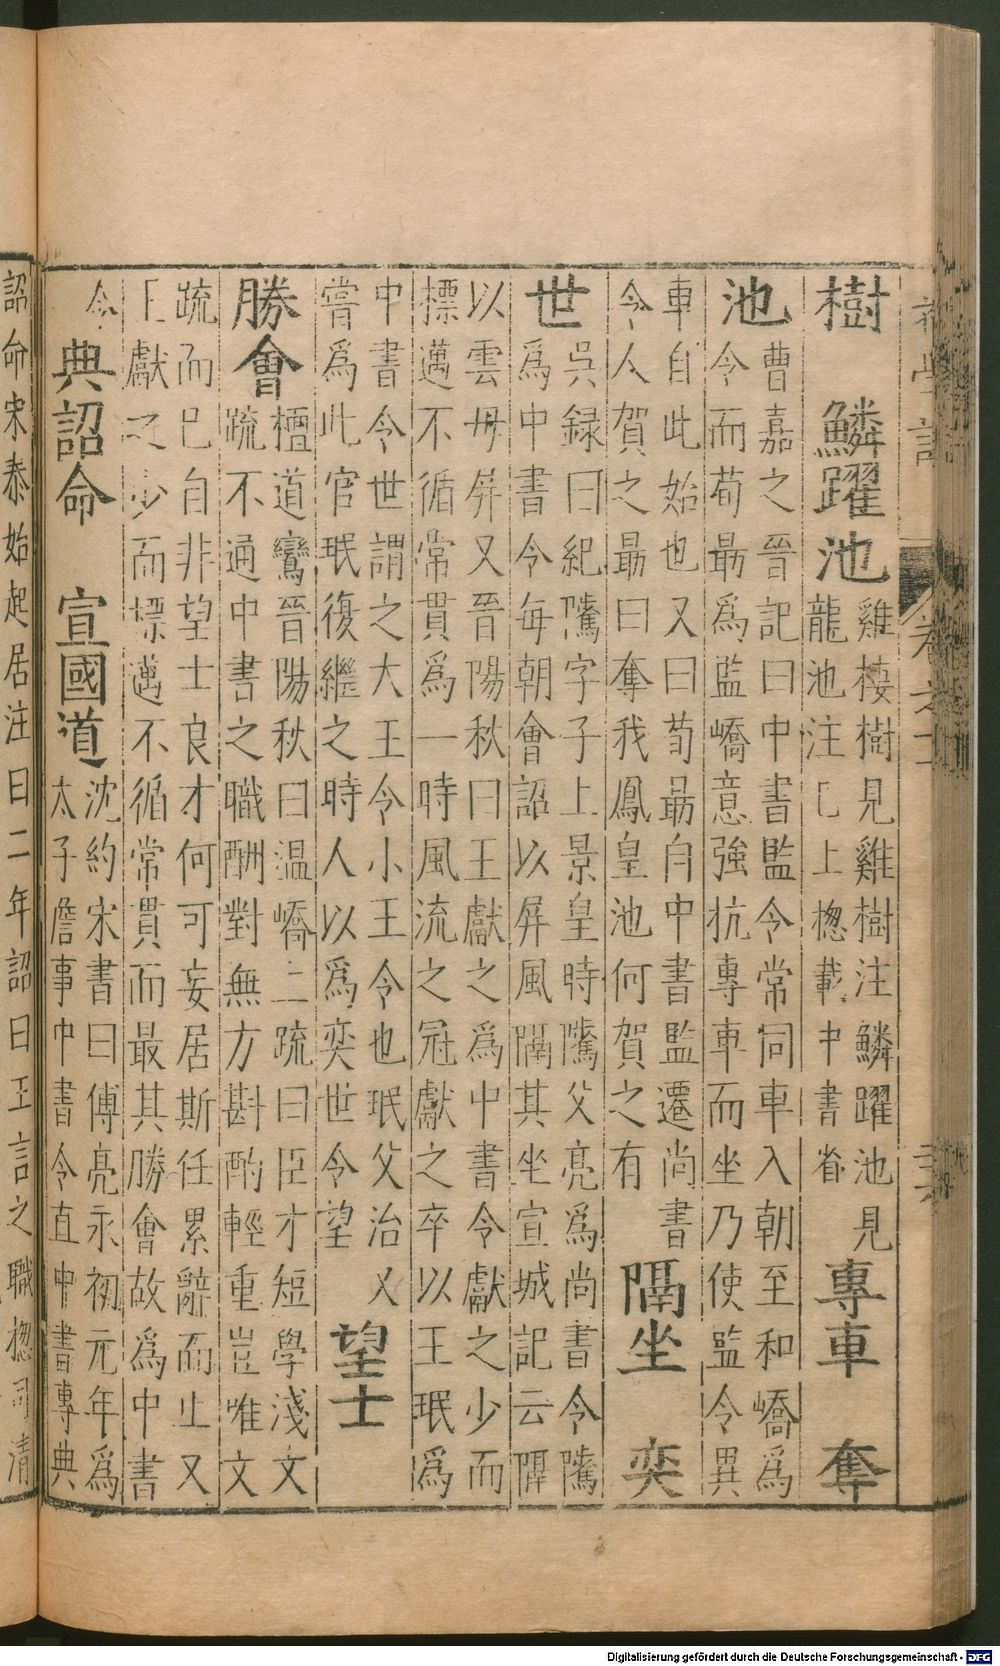 樹 鱗躍池 雞棲樹見雞樹注鱗躍池見
龍池注已上揔載中書省 專車 奪
池 曹嘉之晉記曰中書監令常同車入朝至和嶠爲
令而荀勗爲監嶠意強抗專車而坐乃使監令異
車自此始也又曰荀勗自中書監遷尚書
令人賀之勗曰奪我鳳皇池何賀之有 隔坐 奕
世 吳録曰紀隲字子上景皇時隲父亮爲尚書令隲
爲中書令每朝會詔以屏風隔其坐宣城記云隔
以雲母屏又晉陽秋曰王獻之爲中書令獻之少而
標邁不循常貫爲一時風流之冠獻之卒以王珉爲
中書令世謂之大王令小王令也珉父治又
嘗爲此官珉復繼之時人以爲奕世令望 望士
勝會 檀道鸞晉陽秋曰温嶠上疏曰臣才短學淺文
疏不通中書之職酬對無方斟酌輕重豈唯文
疏而已自非望士良才何可妄居斯任累辭而止又
王獻之少而標邁不循常貫而最其勝會故爲中書
令 典詔命 宣國道 沈約宋書曰傅亮永初元年爲
太子詹事中書令直中書專典
詔命宋泰始起居注曰二年詔曰王言之職揔司清
Digitalisierung gefördert durch die Deutsche Forschungsgemeinschaft - DFG